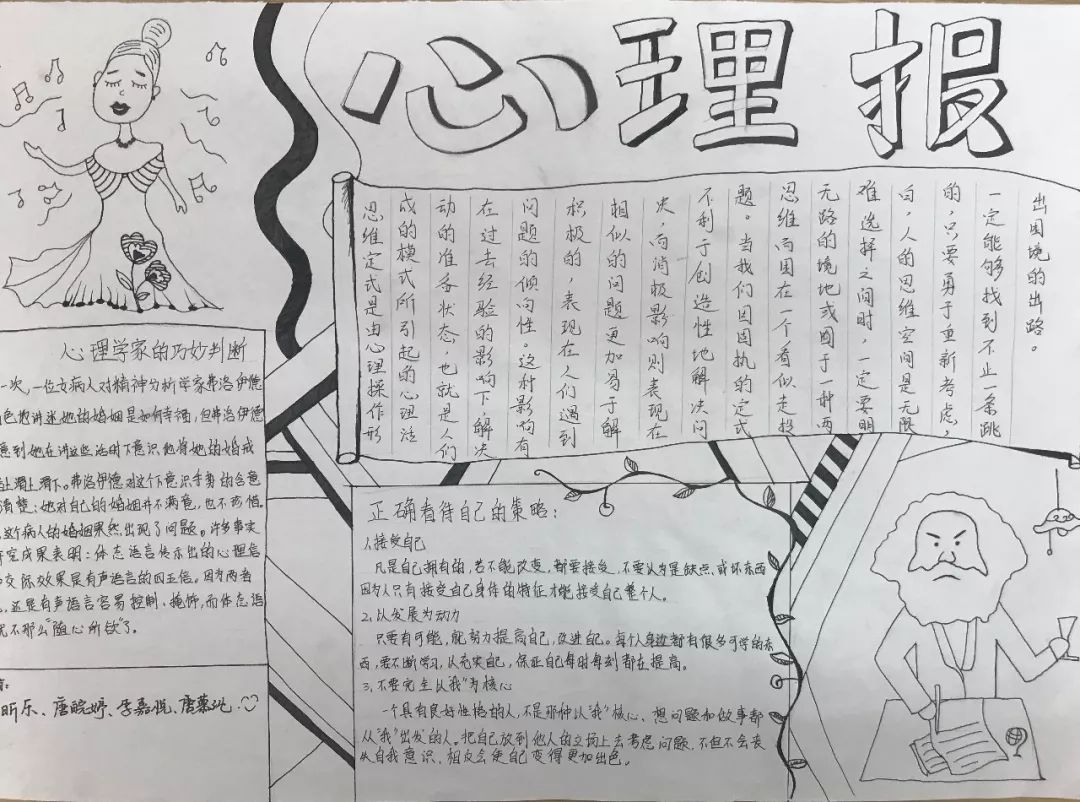 心理报
思维定式是由心理操作形
成的模式所引起的心理活
动的准备状态，也就是人们
在过去经验的影响下，解决
问题的倾向性。这种影响有
积极的，表现在人们遇到
相似的问题更加易于解
决，而消极影响则表现在
不利于创造性地解决问
题。当我们因固执的定式
思维而困在一个看似走投
无路的境地或囿于一种两
难选择之间时，一定要明
白，人的思维空间是无限
的，只要勇于重新考虑，
一定能够找到不止一条跳
出困境的出路。
心理学家的巧妙判断
一次，一位女病人对精神分析学家弗洛伊德
色地讲述她的婚姻是如何幸福，但弗洛伊德
意到她在讲这些话时下意识地将她的婚戒
上滑上滑下。弗洛伊德对这个下意识手势的含意
清楚：她对自己的婚姻并不满意，也不珍惜。
这个病人的婚姻果然出现了问题。许多事实
研究成果表明：体态语言传示出的心理信
交际效果是有声语言的四五倍。因为两者
，还是有声语言容易控制、掩饰，而体态语
就不那么“随心所欲”了。
昕乐、唐皖婷、李嘉悦、
正确看待自己的策略：
1.接受自己
凡是自己拥有的，若不能改变，都要接受，不要认为是缺点，或坏东西
因为人只有接受自己身体的特征才能接受自己整个人。
2.以发展为动力
只要有可能，就努力提高自己，改进自己。每个人身边都有很多可学的东
西，要不断学习，以充实自己，保证自己每时每刻都在提高。
3.不要完全以“我”为核心
一个具有良好性格的人，不是那种以“我”核心，想问题和做事都
从“我”出发的人。把自己放到他人的立场上去考虑问题，不但不会丧
失自我意识，相反会使自己变得更加出色。